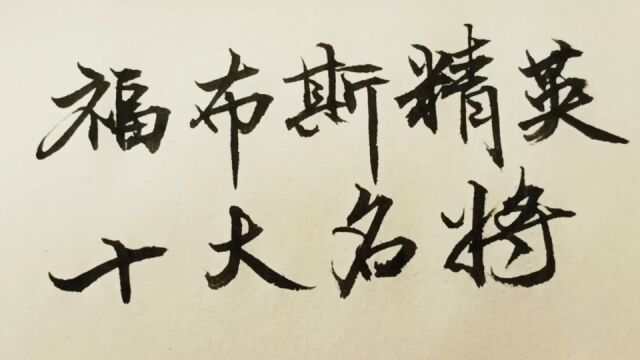 福布斯精英
十大名将